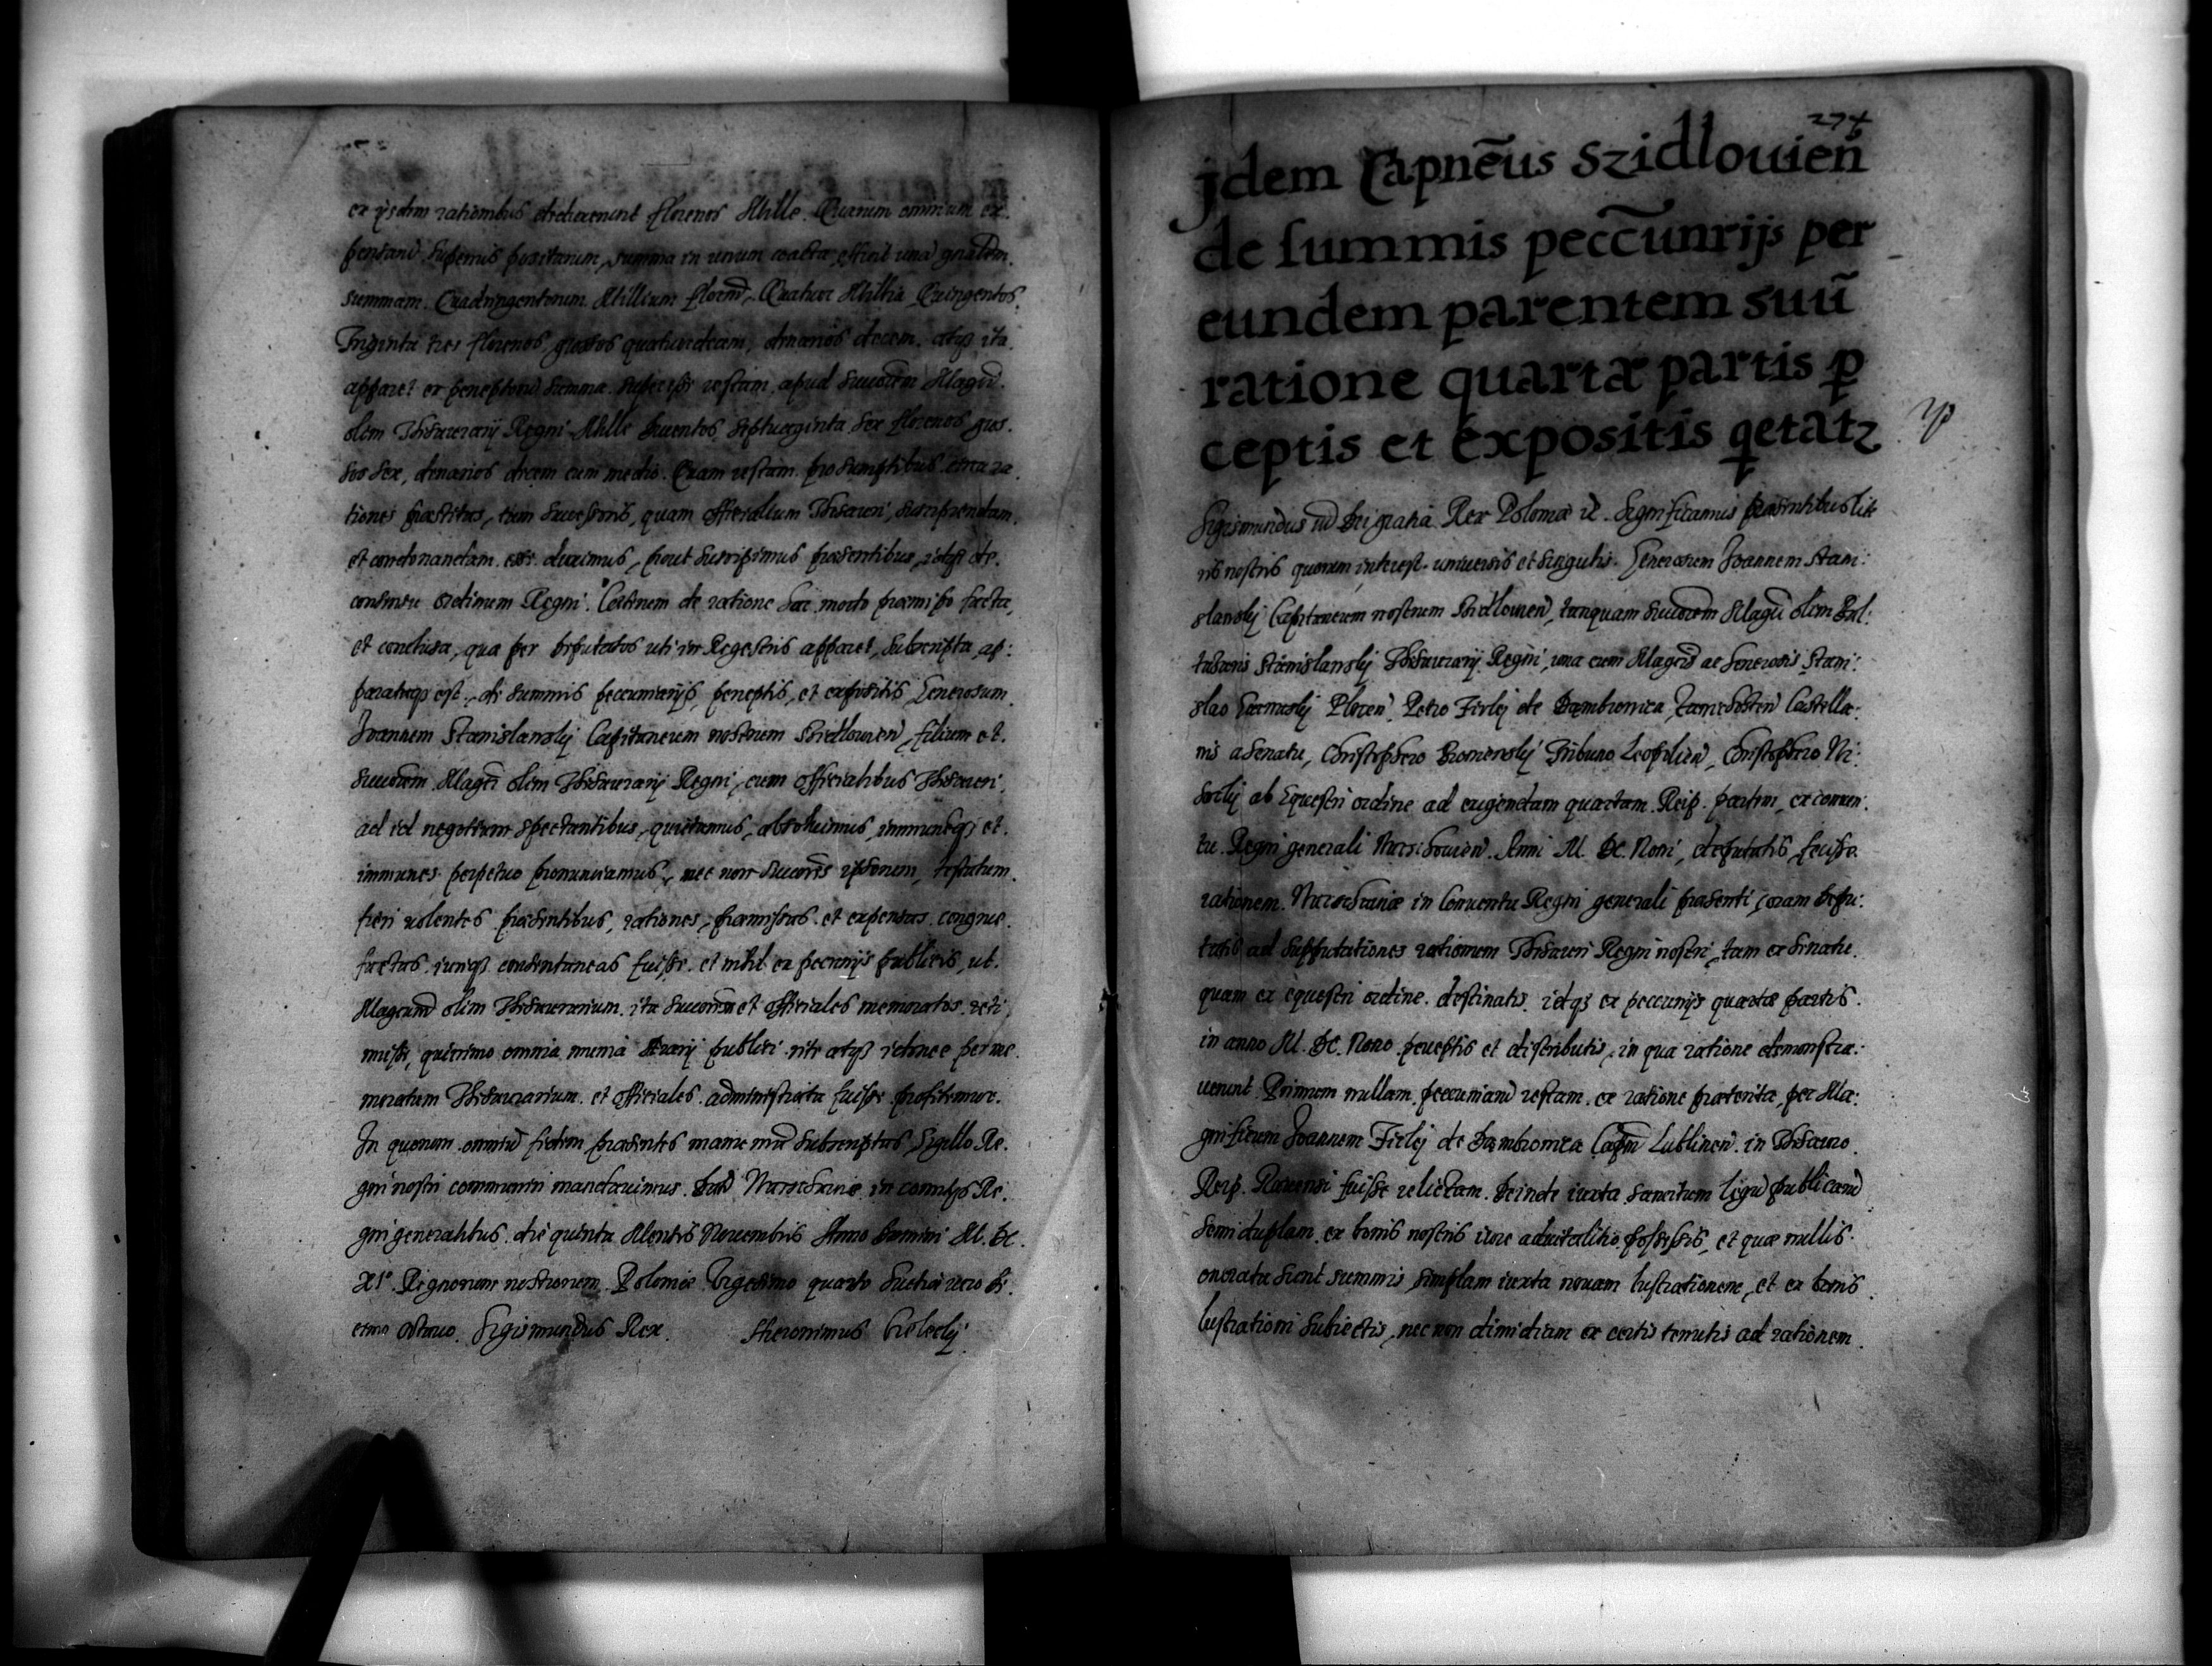 ex ijsdem rationibus detraxerunt florenos Mille. Quarum omnium ex.
pensarũ superius positarum, summa in unum coacta, efficit unã gñalem.
summam. Quadringentorum Millium florenõ. Quatuor Millia Quingentos.
Triginta tres florenos, grossos quatuordecim, denarios decem. atqз ita.
apparet ex perceptorũ summa. superesse restam, apud Succorem Magcĩ.
olim Thesaurarij Regni Mille Ducentos, septuaginta sex florenos, gros.
sos sex, denarios decem cum medio. Quam restam pro sumptibus circa ra.
tiones præstitas, tam Successoris, quam officialium Thesauri, suscipiendam.
et condonandam esse duximus, prout suscipimus præsentibus, idqз de.
consensu ordinum Regni. Caeterum de ratione hac modo præmisso facta,
et conclusa, qua per Deputatos uti in Regestris apparet, subscripta, ap:
parataqз est, de summis peccuniarijs, perceptis, et expositis, Generosum.
Joannem Stanislawskij Capitaneum nostrum Szidlouien̄, filium et.
succorem Magcĩ olim Thesaurarij Regni, cum officialibus Thesauri,
ad id negotium spectantibus, quietamus, absoluimus, immunesqз et.
immunes perpetuo pronunciamus, nec non succores ipsorum, testatum.
fieri volentes præsentibus, rationes, præmissas et expensas congrue.
factas iurisqз consentaneas fuisse. et nihil ex peccunijs publicis, ut.
Magcum olim Thesaurarium. ita succorem et officiales memoratos reti.
nuisse, quinimo omnia munia Aerarij publici rite atqз idonee per me.
moratum Thesaurarium. et officiales administrata fuisse profitemur.
In quorum omniũ fidem præsentes manu nrã subscriptas, Sigillo Re.
gni nostri communiri mandauimus. Datũ Warschauiæ in comitijs Re.
gni generalibus. die quinta Mensis Nouembris Anno Domini M. DC.
XI°. Regnorum nostrorum Poloniæ Vigesimo quarto Suetiæ vero De.
cimo octauo. Sigismundus Rex. Hieronimus Cielecky.
274
jdem Capnēus Szidlouien̄
de summis pecc̄unrijs per
eundem parentem suũ
ratione quartæ partis ꝑ
ceptis et expositis qetatꝛ
Sigismundus iiĩ Dei gratia Rex Poloniæ ꝛc. Significamus præsentibus litt
ris nostris quorum interest. uniuersis et singulis. Generosum Joannem Stani:
slauskij Capitaneum nostrum Szidlouien̄, tanquam succorem Magcĩ olim Bal:
tasaris Stanislauskij Thesaurarij Regni, una cum Magcis ac Generosis Stani:
slao Plocen̄, Petro Firlej de Dambrowica Castella:
nis a Senatu, Christophero Tribuno Leopolien̄, Christophero
ab Equestri ordine ad exigendam quartam Reip. partem, ex conuen:
tu Regni generali Warschouien̄. Anni M. DC. Noni, deputatis, fecisse
rationem. Warschauiæ in Conuentu Regni generali præsenti, coram Depu:
tatis ad supputationes rationum Thesauri Regni nostri, tam ex Senatu.
quam ex equestri ordine. destinatis. idqз ex peccunijs quartæ partis.
in anno M. DC. Nono. perceptis et distributis, in qua ratione demonstra:
uerunt Primum nullam peccuniarũ restam. ex ratione præterita, per Ma:
gnificum Joannem Firlej de Dambrowica Capm̄ Lublinen̄. in Thesauro.
Reip. Rauensi fuisse relictam. Deinde iuxta sancitum legũ publicarũ
semiduplam. ex bonis nostris iure aduitalitio possessis, et quæ nullis.
onerata sient summis simplam iuxta nouam lustrationem, et ex bonis.
lustrationi subiectis, nec non dimidiam ex certis tenutis ad rationem.